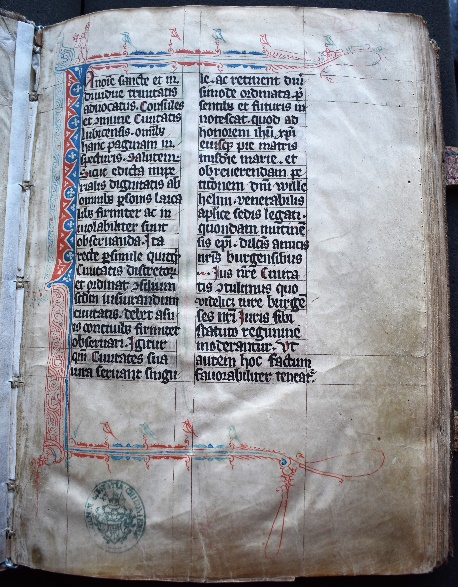 In noie sancte et in
diuidue trinitatis
aduocatus. Consules
et cõmune Ciuitatis
lubicensis. omnibus
hanc paginam in
specturis. Salutem
Sicut edicta impe
rialis dignitatis ab
omnibus personis laica
libus firmiter ac in
uiolabiliter sunt
obseruanda. Ita
recte
Ciuitatis discretor
et ordinat
Ciuitatis. debet a
is conciuibus firmiter
obseruari. Igitur
Ciuitates sua
iura seruant singu
le. ac retinent
simode ordinata. p
sentibus et futuris in
notescat. quod ad
honorem ihu. xpi
eiusque pie matris
marie. et
ob reuerendam pe
ticionem dni wille
helmi. venerabilis
aplice sedis legati.
quondam mutine
sis epi. dilectis amicis
nris burgensibus
Ius nre Ciuita
tis 9tulimus quo
videlicet iure burge
ses nri Iuris sibi
statuto regimine
moderantur. Vt
autem hoc factum
fauorabiliter teneat